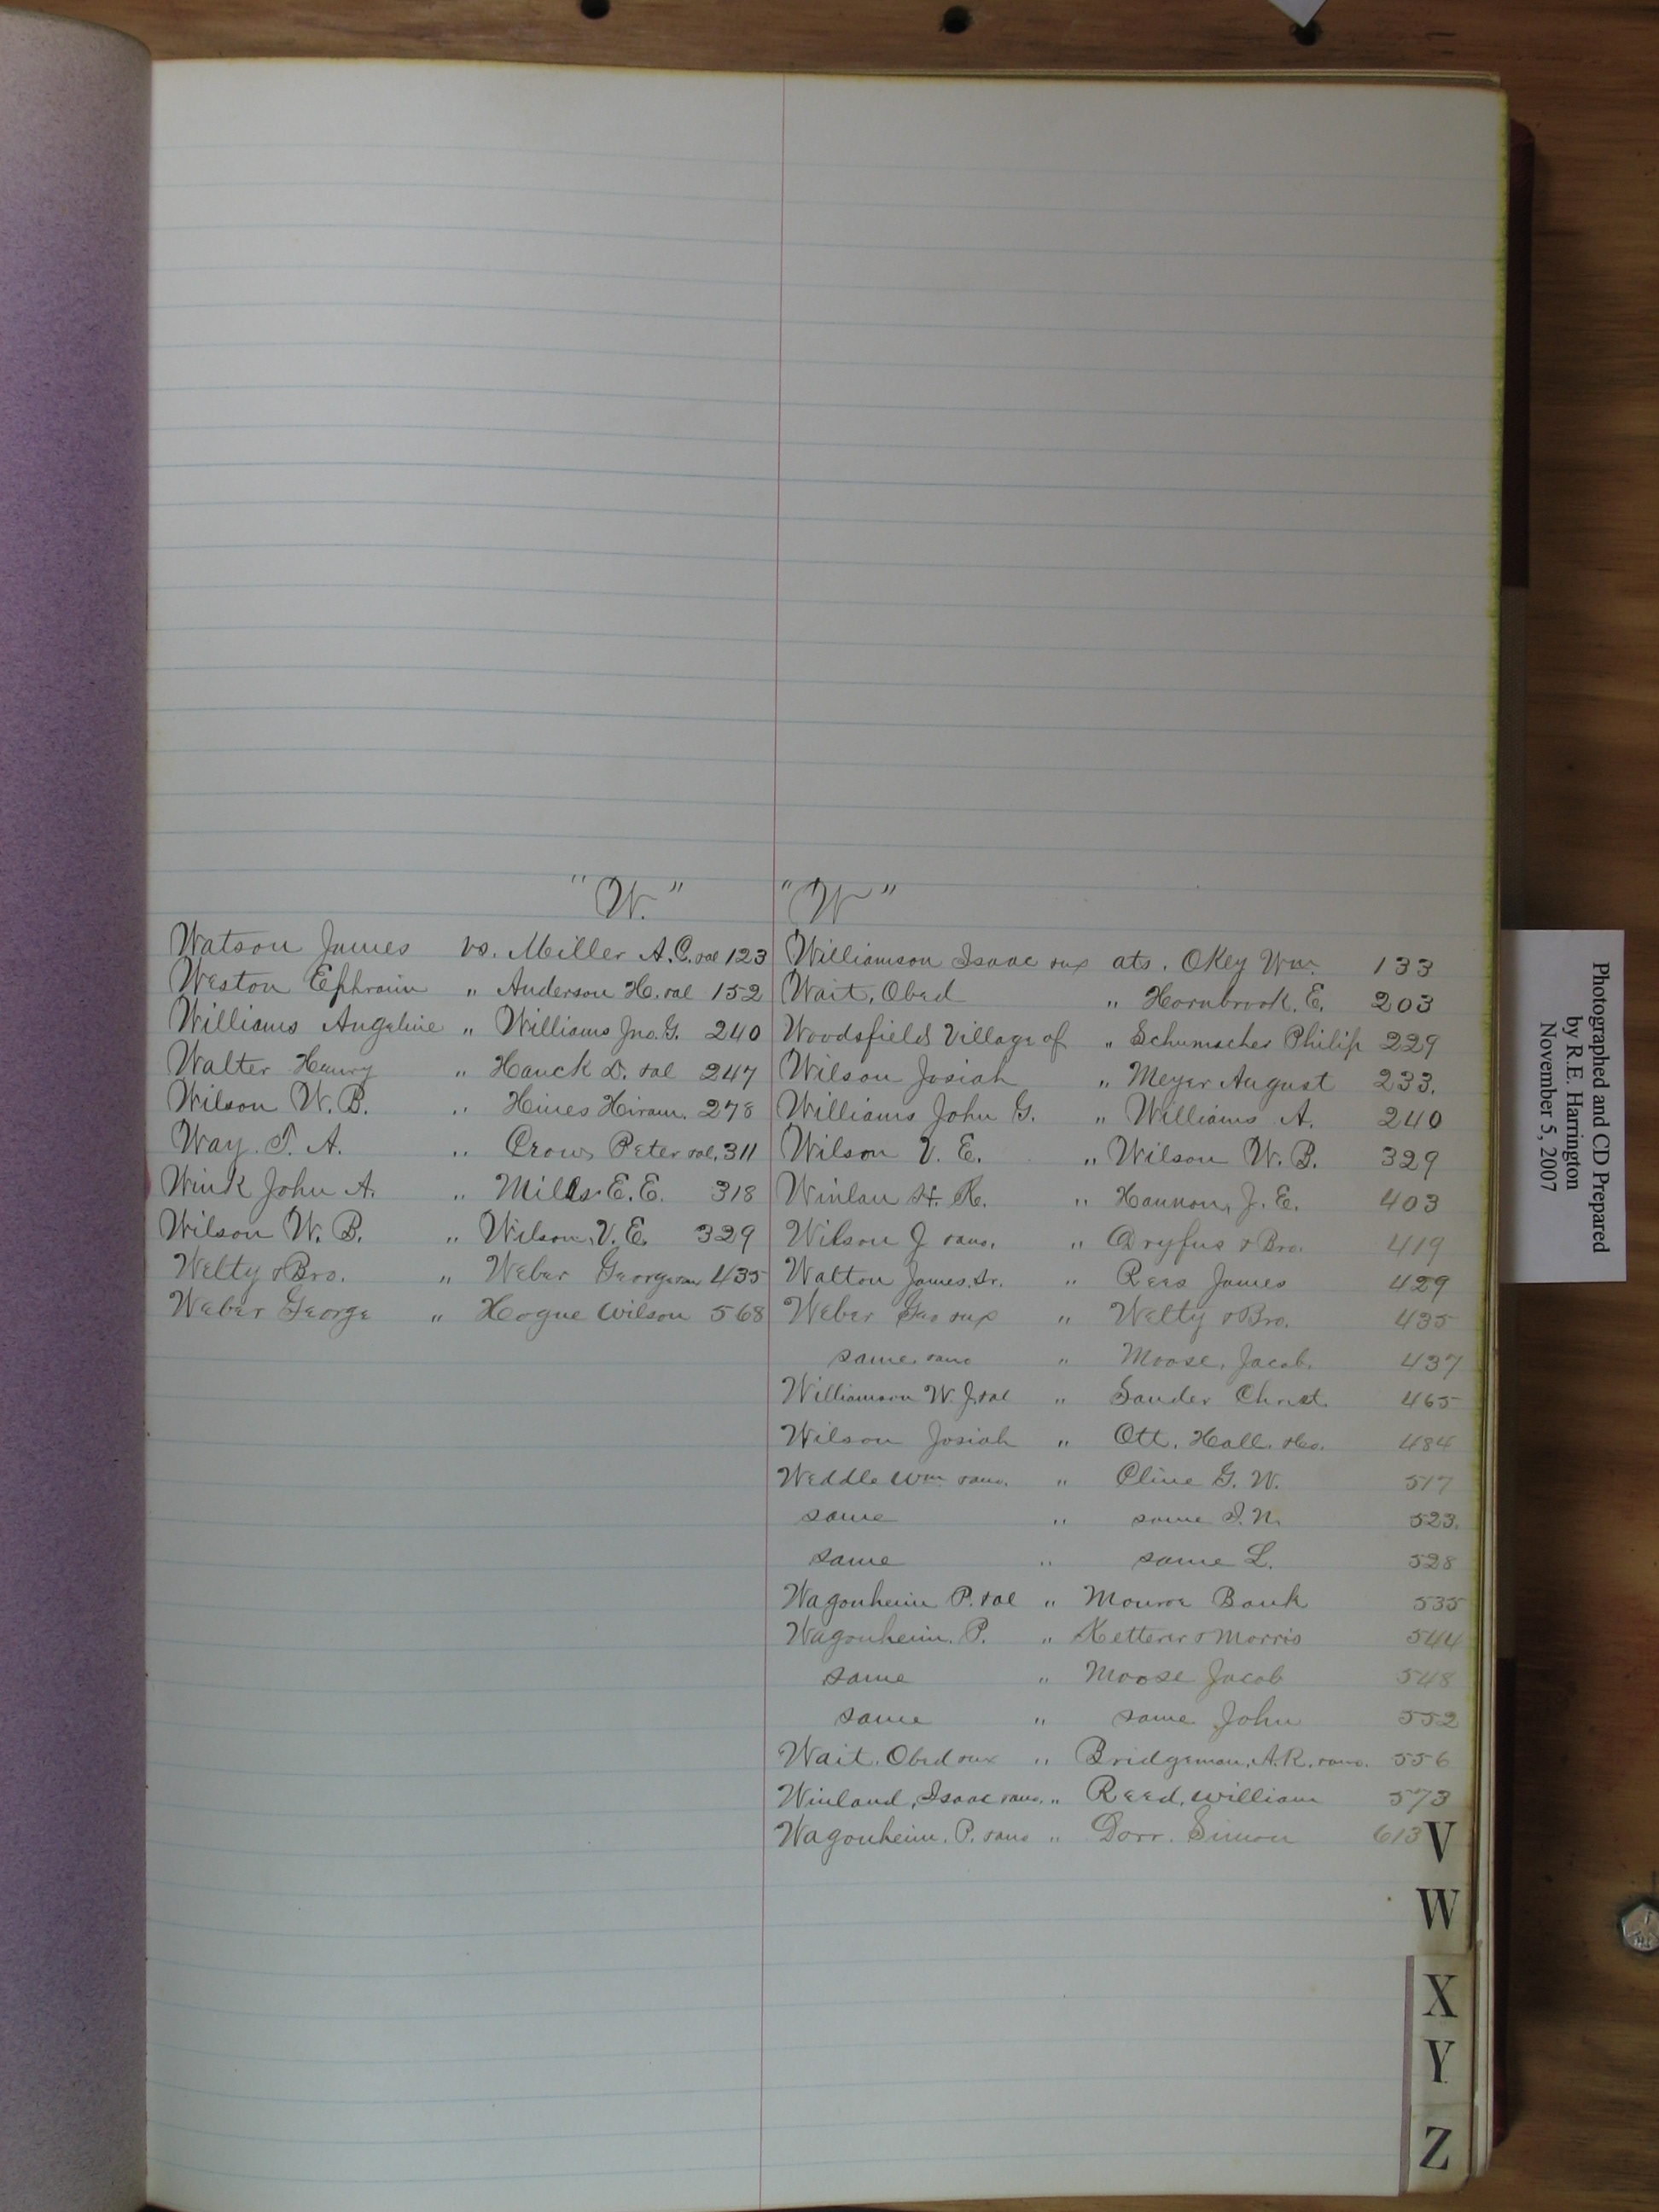 "W."
Watson James vs. Miller A.C. &al 123
Weston Ephraim " Anderson H. &al 152
Williams Angeline " Williams Jno. G. 240
Walter Henry " Hauck D. &al 247
Wilson W. B. " Hines Hiram. 278
Way. T. A. " Crow, Peter &al. 311
Wink John A. " Mills. E. E. 318
Wilson W. B. " Wilson, V. E. 329
Welty & Bro. " Weber George 435
Weber George " Hogue Wilson 568
"W"
Williamson Isaac &ux ats. OKey Wm. 133
Wait, Obed " Hornbrook. E. 203
Woodsfield Village of " Schumacher Philip 229
Wilson Josiah " Meyer August 233.
Williams John G. " Williams A. 240
Wilson V. E. " Wilson W. B. 329
Winlan H. R. " Hannon, J. E. 403
Wilson J &ano. " Dryfus & Bro. 419
Walton James. Sr. " Rees James 429
Weber Geo &ux " Welty & Bro. 435
same &ano " Moose, Jacob. 437
Williamson W. J. &al " Sander Christ. 465
Wilson Josiah " Ott. Hall. &Co. 484
Weddle Wm &ano. " Cline G. W. 517
same " same I. N. 523.
same " same L. 528
Wagonheim P. &al " Monroe Bank 535
Wagonheim. P. " Ketterer & Morris 544
same " Moose Jacob 548
same " same John 552
Wait. Obed &ux " Bridgeman, A. R. &ano. 556
Winland, Isaac &ano. " Reed, William 573
Wagonheim. P. &ano " Dorr. Simon 613
V
W
X
Y
Z
Photographed and CD Prepared
by R.E. Harrington
November 5, 2007